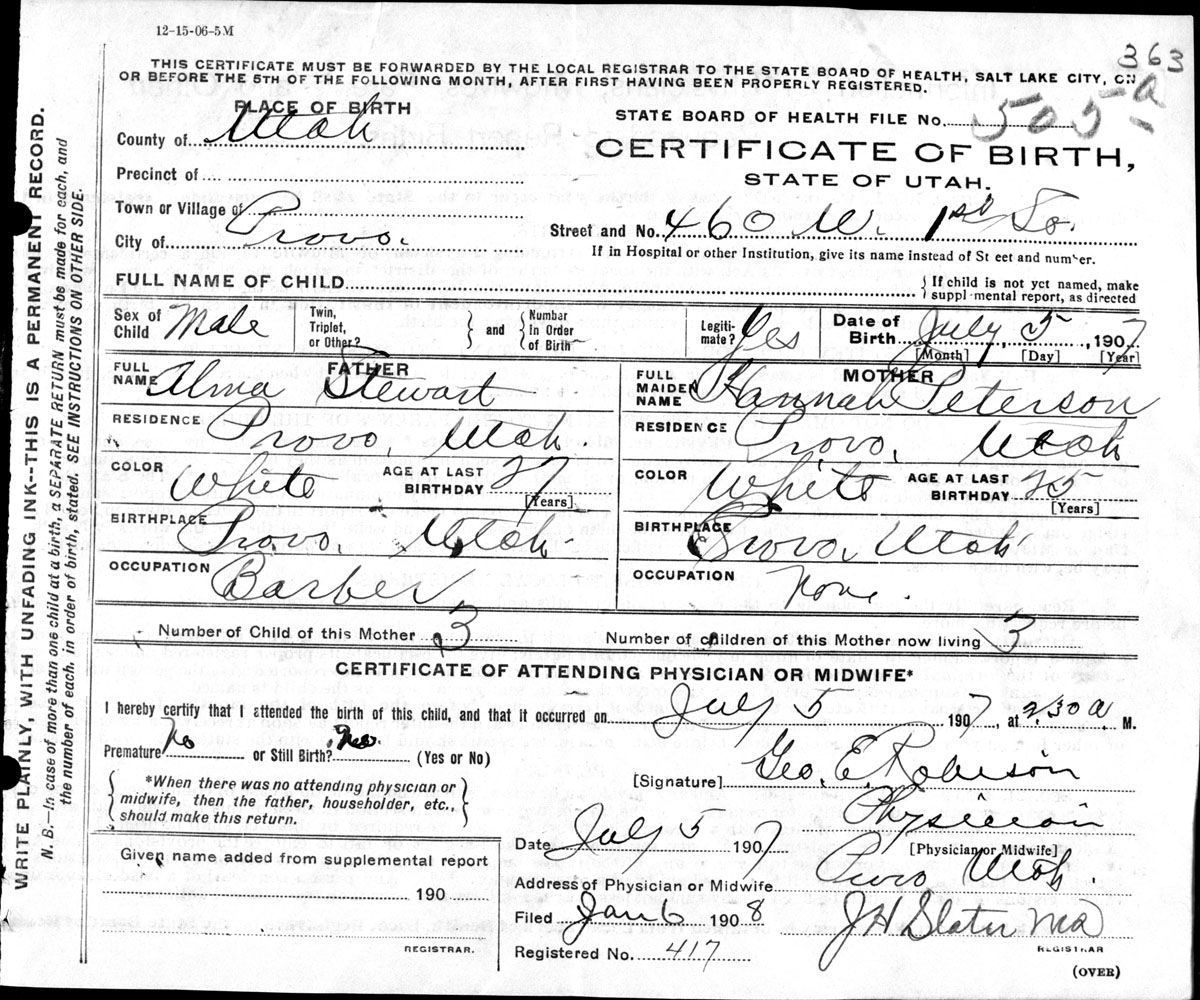 12-15-06-5M
363
THIS CERTIFICATE MUST BE FORWARDED BY THE LOCAL REGISTRAR TO THE STATE BOARD OF HEALTH, SALT LAKE CITY, ON
OR BEFORE THE 5TH OF THE FOLLOWING MONTH, AFTER FIRST HAVING BEEN PROPERLY REGISTERED.
PLACE OF BIRTH
County of Utah
Precinct of
Town or Village of
City of Provo.
STATE BOARD OF HEALTH FILE No. 505 a
CERTIFICATE OF BIRTH,
STATE OF UTAH.
Street and No. 460 W. 1st So.
If in Hospital or other Institution, give its name instead of St eet and number.
FULL NAME OF CHILD
{ If child is not yet named, make
suppl mental report, as directed
Sex of Child Male
Twin, Triplet, or Other? } and { Number in Order of Birth
Legiti-mate? Yes
Date of Birth July 5, 1907
[Month] [Day] [Year]
FATHER
FULL NAME Alma Stewart
RESIDENCE Provo, Utah.
COLOR White AGE AT LAST BIRTHDAY 27
[Years]
BIRTHPLACE Provo, Utah
OCCUPATION Barber
MOTHER
FULL MAIDEN NAME Hannah Peterson
RESIDENCE Provo, Utah
COLOR White AGE AT LAST BIRTHDAY 25
[Years]
BIRTHPLACE Provo, Utah
OCCUPATION None.
Number of Child of this Mother 3 Number of children of this Mother now living 3
CERTIFICATE OF ATTENDING PHYSICIAN OR MIDWIFE*
I hereby certify that I attended the birth of this child, and that it occurred on July 5 1907, at 2.30 a M.
Premature? No or Still Birth? No (Yes or No)
{ *When there was no attending physician or
midwife, then the father, householder, etc.,
should make this return. }
[Signature] Geo. E. Robison
Physician
[Physician or Midwife]
Date July 5 1907
Address of Physician or Midwife Provo Utah.
Given name added from supplemental report
190
REGISTRAR.
Filed Jan 6 1908 J H Slater
REGISTRAR
Registered No. 417
(OVER)
WRITE PLAINLY, WITH UNFADING INK--THIS IS A PERMANENT RECORD.
N. B.—In case of more than one child at a birth, a SEPARATE RETURN must be made for each, and
the number of each, in order of birth, stated. SEE INSTRUCTIONS ON OTHER SIDE.